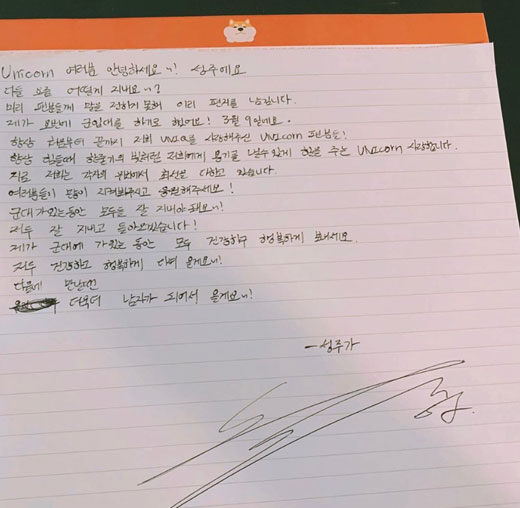 Unicorn 여러분 안녕하세요~! 성주에요
다들 요즘 어떻게 지내요~?
미리 팬분들께 말을 전하지 못해 이리 편지를 남깁니다.
제가 이번에 군입대를 하기로 했어요! 3월 9일에요.
항상 처음부터 끝까지 저희 UNIQ를 사랑해주신 Unicorn 팬분들!
항상 힘들때 한줄기의 빛처럼 저희에게 용기를 낼수있게 힘을 주는 Unicorn 사랑합니다.
지금 저희는 각자의 위치에서 최선을 다하고 있습니다.
여러분들이 많이 지켜봐주시고 응원해주세요!
군대 가있는동안 모두들 잘 지내야돼요~!
저두 잘 지내고 돌아오겠습니다!
제가 군대에 가 있는 동안 모두 건강하구 행복하게 보내세요.
저두 건강하고 행복하게 다녀 올게요~!
다음에 만날땐
더욱더 남자가 되어서 올게요~!
- 성주가